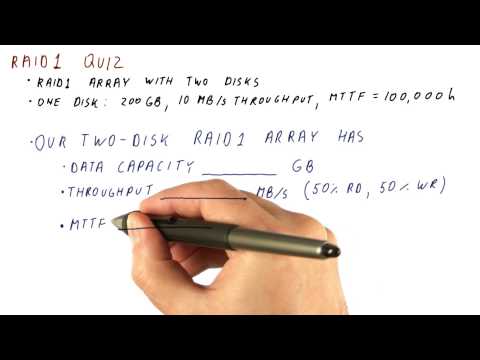 RAID1 QUIZ
• RAID1 ARRAY WITH TWO DISKS
• ONE DISK: 200GB, 10 MB/S THROUGHPUT, MTTF = 100,000h
• OUR TWO-DISK RAID1 ARRAY HAS
• DATA CAPACITY ________ GB
• THROUGHPUT ________ MB/S (50% RD, 50% WR)
• MTTF ________